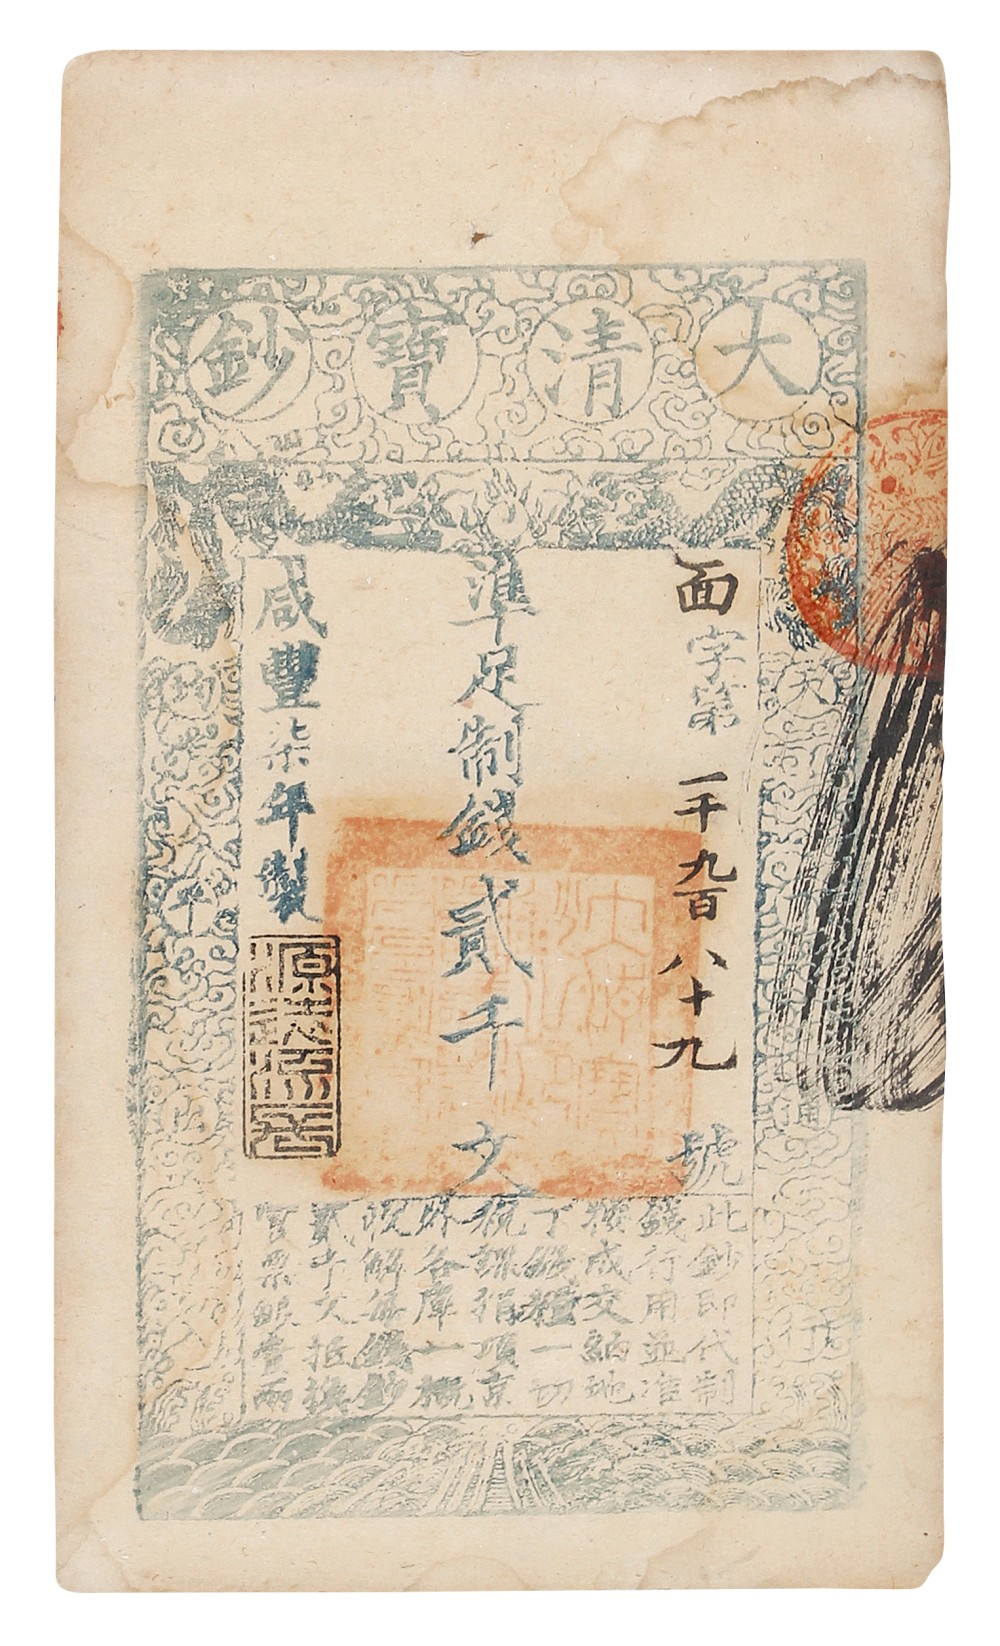 大清寶鈔
天
通
行
面字第一千九百八十九號
準足制錢貳千文
咸豐柒年製
源遠流長
均
平
出
此鈔即代制
錢行用並准
按成交納地
丁錢糧一切
稅課捐項京
外各庫一概
收解每錢鈔
貳千文抵換
官票銀壹兩